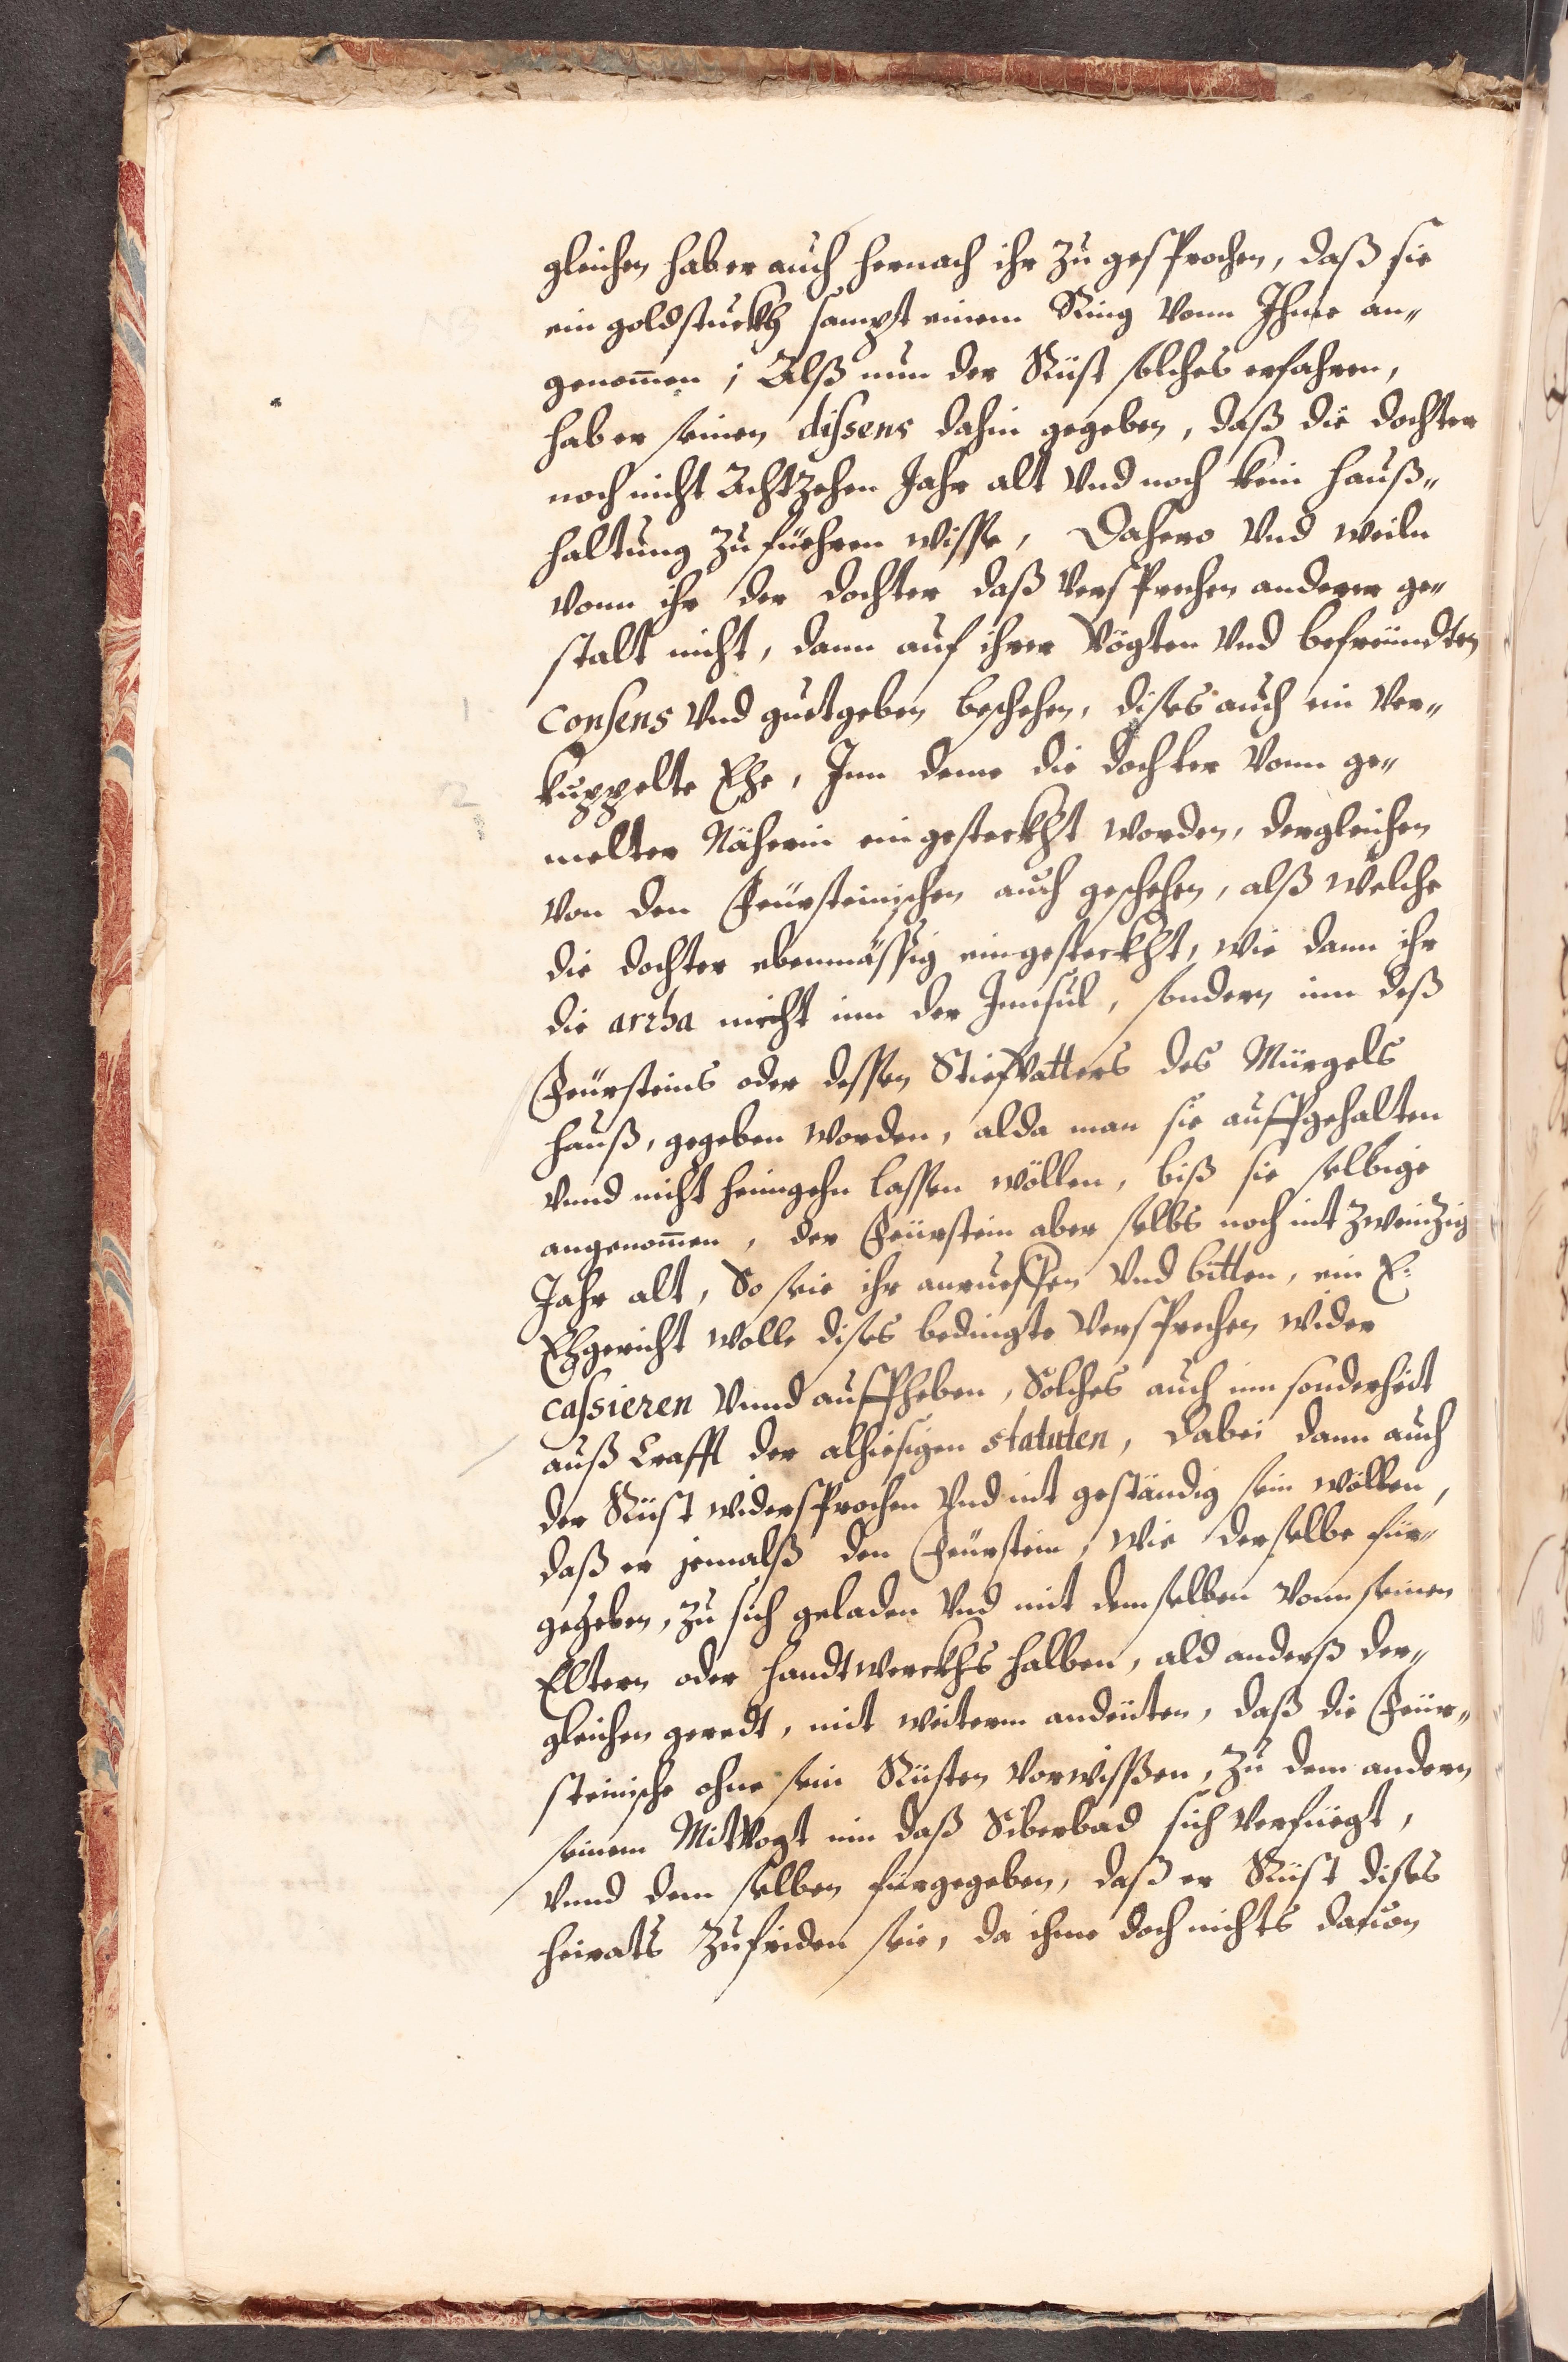 gleichen hab er auch hernach ihr zu gesprochen, daß sie
ein goldstuckh sampt einem Ring vonn Ihme an„
genom̄en ; Alß nun der Rüst solches erfahren,
hab er seinen dissens dahin gegeben, daß die dochter
noch nicht Achtzehen Jahr alt vnd noch kein hauß„
haltung zu füehren wisse, Dahero vnd weiln
vonn ihr der dochter daß versprechen anderer ge„
stalt nicht, dann auf ihrer Vögten vnd befreündten
consens vnd guetgeben beschehen, dises auch ein ver„
kuppelte Ehe, Inn deme die dochter vonn ge„
melter Näherin eingesteckht worden, dergleichen
von den Feürsteinischen auch geschehen, alß welche
die dochter ebenmässig eingesteckht, wie dann ihr
die arrha nicht inn der Innsul, sondern inn deß
Feürsteins oder dessen Stiefvatters des Mürgels
hauß, gegeben worden, alda man sie auffgehalten
vnnd nicht heimgehn lassen wöllen, biß sie selbige
angenom̄en, der Feürstein aber selbs noch nit zweinzig
Jahr alt, So seie ihr anrueffen vnd bitten, ein E:
Ehgericht wolle dises bedingte versprechen wider
cassieren vnnd auffheben, Solches auch inn sonderheit
auß Crafft der alhiesigen statuten, Dabei dann auch
der Rüst widersprochen vnd nit geständig sein wöllen,
daß er jemalß den Feürstein, wie derselbe für„
gegeben, zu sich geladen vnd mit demselben vonn seinen
Eltern oder handtwerckhs halben, ald anderß der„
gleichen geredt, mit weiterm andeüten, daß die Feür„
steinische ohne sein Rüsten vorwissen, zu dem andern
seinem Mitvogt inn daß Siberbad sich verfüegt,
vnnd dem selben fürgegeben, daß er Rüst dises
heirats zufriden seie, da ihme doch nichts dauon
1
2